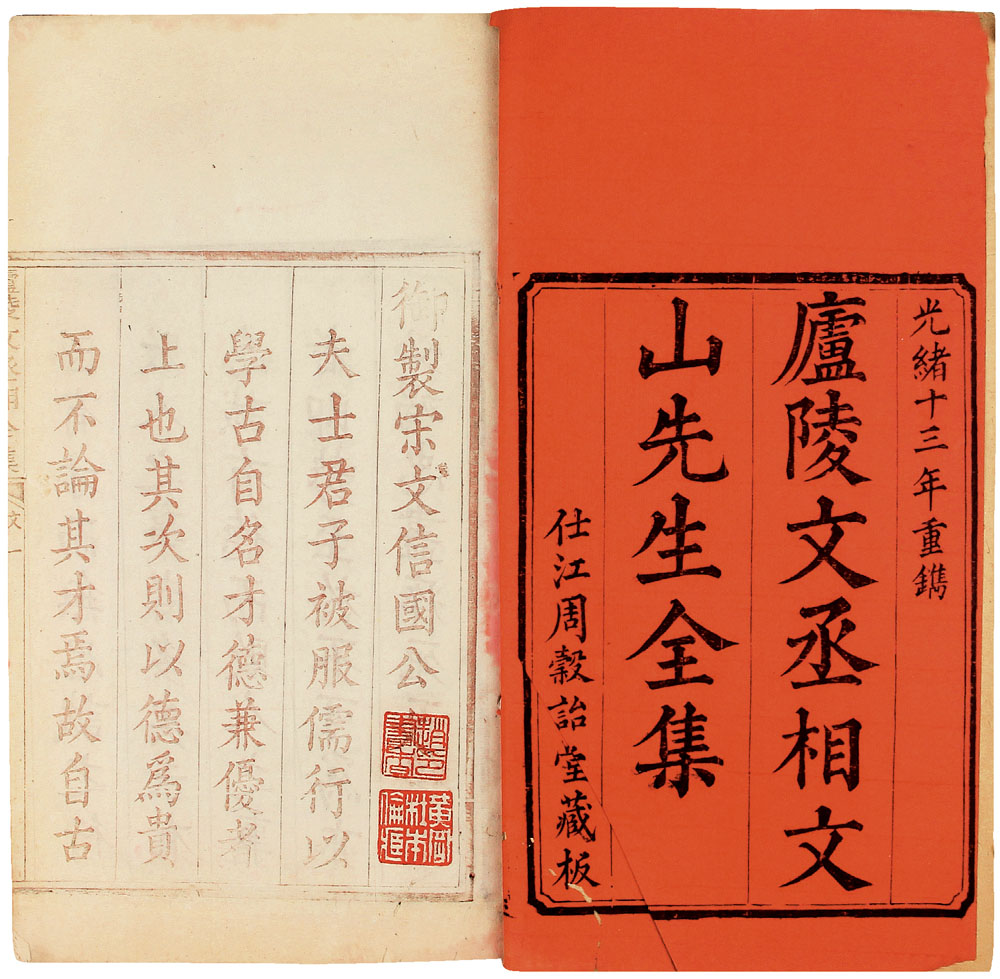 光緒十三年重鐫
廬陵文丞相文
山先生全集
仕江周縠詒堂藏板
御製宋文信國公
夫士君子被服儒行以
學古自名才德兼優者
上也其次則以德爲貴
而不論其才焉故自古